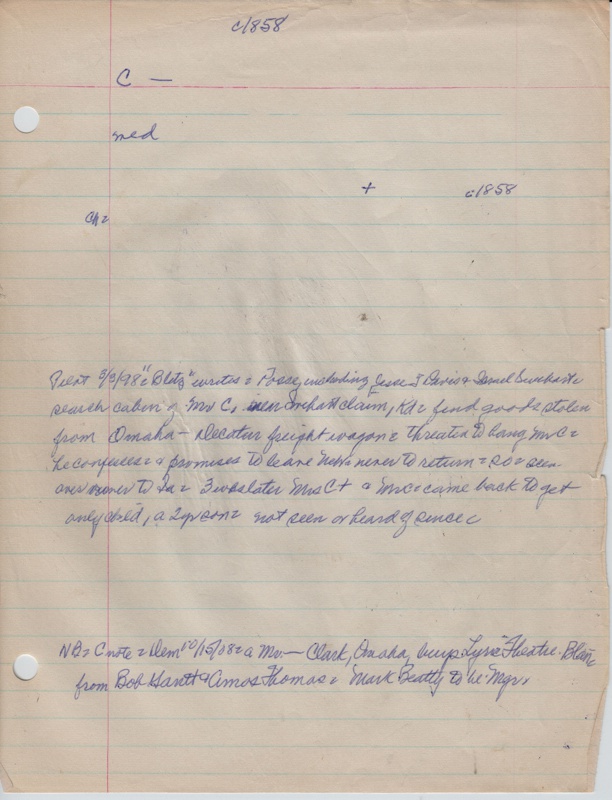 c/1858
C —
med
+ c/1858
Ch=
Pilot 5/3/98 "Bltz" writes = Posse, including Jesse T Davis &
search cabin of Mr C, near claim, & find goods stolen
from Omaha - Decatur freight wagon = threaten to hang Mr C =
he confesses = & promises to leave Neb = never to return = so = seen
over river to Ia = 3 wks later Mrs C + a Mr C = came back to get
only child, a 2 yr son = not seen or heard of since
NB = C note = Dem 10/15/08 = a Mr — Clark, Omaha, buys Lyric Theatre. Blair
from Bob & Amos Thomas = Mark Beatty to be Mgr.